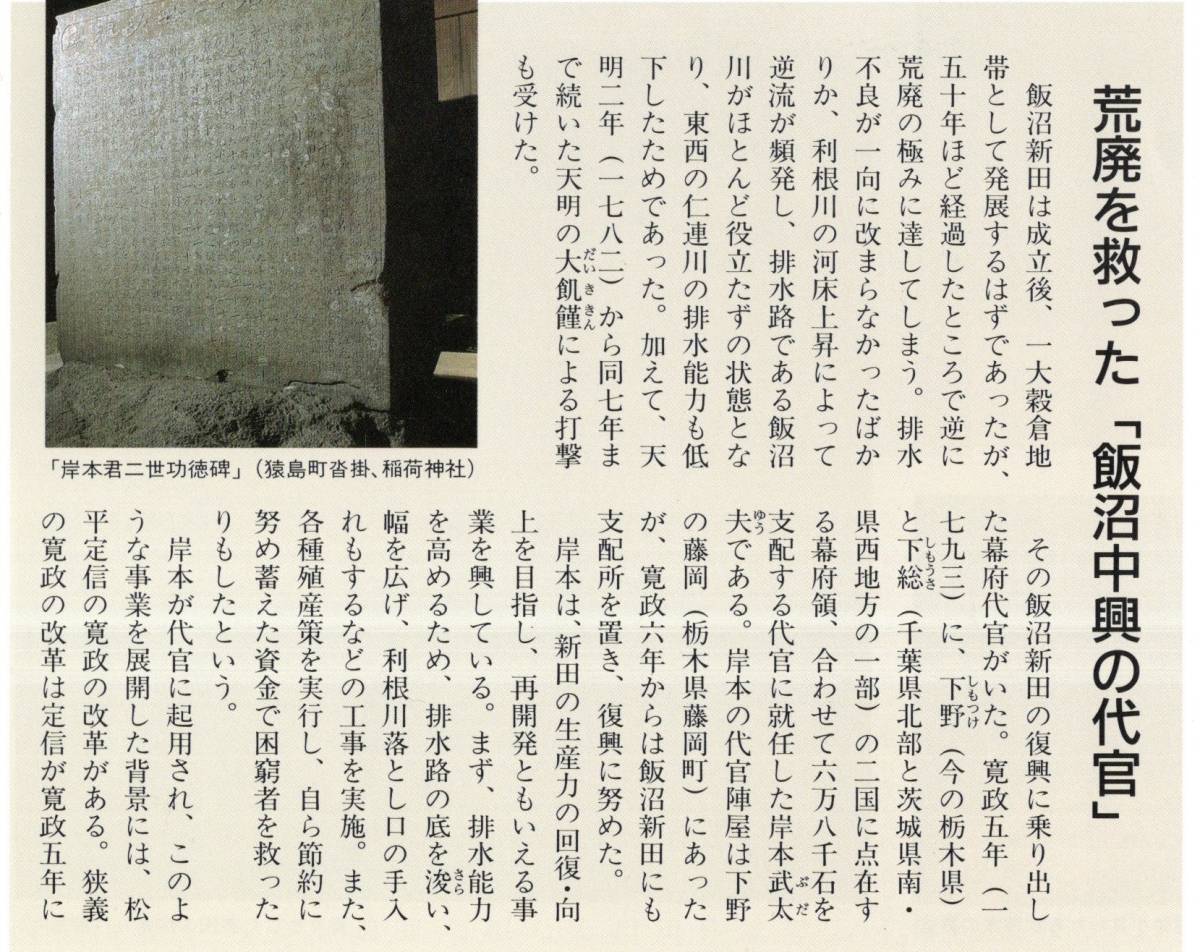 荒廃を救った「飯沼中興の代官」
飯沼新田は成立後、一大穀倉地
帯として発展するはずであったが、
五十年ほど経過したところで逆に
荒廃の極みに達してしまう。排水
不良が一向に改まらなかったばか
りか、利根川の河床上昇によって
逆流が頻発し、排水路である飯沼
川がほとんど役立たずの状態とな
り、東西の仁連川の排水能力も低
下したためであった。加えて、天
明二年（一七八二）から同七年ま
で続いた天明の大飢饉だいききんによる打撃
も受けた。
「岸本君二世功徳碑」（猿島町沓掛、稲荷神社）
その飯沼新田の復興に乗り出し
た幕府代官がいた。寛政五年（一
七九三）に、下野しもつけ（今の栃木県）
と下総しもうさ（千葉県北部と茨城県南・
県西地方の一部）の二国に点在す
る幕府領、合わせて六万八千石を
支配する代官に就任した岸本武太ぶだ
夫ゆうである。岸本の代官陣屋は下野
の藤岡（栃木県藤岡町）にあった
が、寛政六年からは飯沼新田にも
支配所を置き、復興に努めた。
岸本は、新田の生産力の回復・向
上を目指し、再開発ともいえる事
業を興している。まず、排水能力
を高めるため、排水路の底を浚さらい、
幅を広げ、利根川落とし口の手入
れもするなどの工事を実施。また、
各種殖産策を実行し、自ら節約に
努め蓄えた資金で困窮者を救った
りもしたという。
岸本が代官に起用され、このよ
うな事業を展開した背景には、松
平定信の寛政の改革がある。狭義
の寛政の改革は定信が寛政五年に